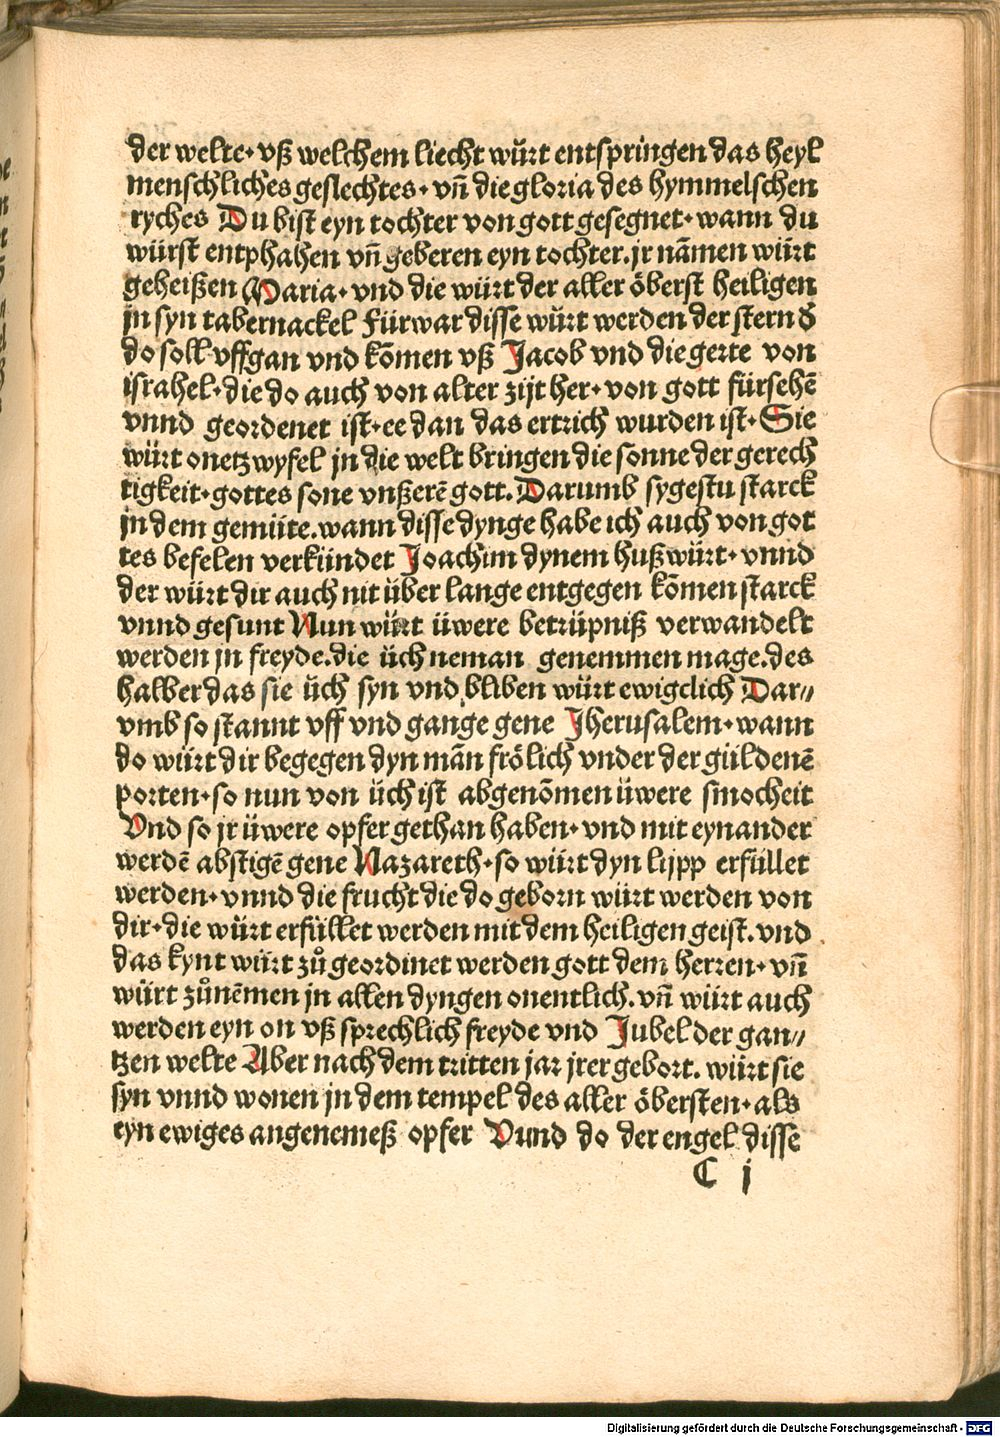 der welte· vß welchem liecht wu̇rt entspringen das heyl
menschliches geslechtes· vn̄ die gloria des hymmelschen
ryches Du bist eyn tochter von gott gesegnet· wann du
würst entphahen vn̄ geberen eyn tochter. jr nāmen würt
geheißen Maria· vnd die würt der aller öberst heiligen
jn syn tabernackel Fürwar disse würt werden der stern d̕
do soll vffgan vnd kōmen vß Jacob vnd die gerte von
israhel· die do auch von alter zijt her· von gott fürsehē
vnnd geordenet ist· ee dan das ertrich wurden ist· Sie
würt onetzwyfel jn die welt bringen die sonne der gerech
tigkeit· gottes sone vnßerē gott. Darumb sygestu starck
jn dem gemüte. wann disse dynge habe ich auch von got
tes befelen verkündet Joachim dynem hußwürt· vnnd
der würt dir auch nit über lange entgegen kōmen starck
vnnd gesunt Nun würt üwere betrüpniß verwandelt
werden jn freyde. die üch neman genemmen mage. des
halber das sie üch syn vnd bliben würt ewigclich Dar⸗
vmb so stannt vff vnd gange gene Jherusalem· wann
do würt dir begegen dyn mān frölich vnder der güldenē
porten· so nun von üch ist abgenōmen üwere smocheit
Vnd so jr üwere opfer gethan haben· vnd mit eynander
werdē abstigē gene Nazareth· so würt dyn lijpp erfüllet
werden· vnnd die frucht die do geborn würt werden von
dir· die würt erfüllet werden mit dem heiligen geist. vnd
das kynt würt zůgeordinet werden gott dem herren· vn̄
würt zůnēmen jn allen dyngen onentlich. vn̄ würt auch
werden eyn on vß sprechlich freyde vnd Jubel der gan⸗
tzen welte Aber nach dem tritten jar jrer gebort. würt sie
syn vnnd wonen jn dem tempel des aller öbersten· als
eyn ewiges angenemeß opfer Vund do der engel disse
C j
Digitalisierung gefördert durch die Deutsche Forschungsgemeinschaft - DFG